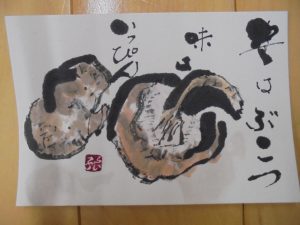 姿はぶこつ
味は
いっぴん